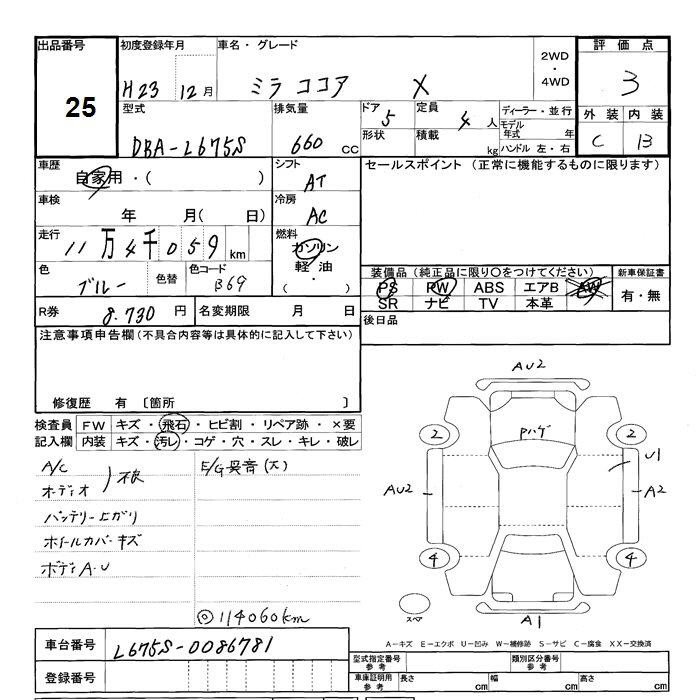 出品番号 初度登録年月 車名・グレード 2WD・4WD 評価点
25 H23 12月 ミラ ココア X 3
型式 排気量 ドア 5 定員 4人 ディーラー・並行 外装 内装
DBA-L675S 660cc 形状 積載 kg モデル年式 年 C B
ハンドル 左・右
車歴 シフト セールスポイント (正常に機能するものに限ります)
自家用・( ) AT
車検 冷房
年 月( 日) AC
走行 燃料
11万4千059km ガソリン
色 色替 色コード 軽油 装備品(純正品に限り〇をつけてください) 新車保証書
ブルー B69 ・( ) PS PW ABS エアB AW 有・無
SR ナビ TV 本革
R券 8.730円 名変期限 月 日 後日品
注意事項申告欄(不具合内容等は具体的に記入して下さい)
修復歴 有 〔箇所 〕
検査員 FW キズ・飛石・ヒビ割・リペア跡・×要
記入欄 内装 キズ・汚レ・コゲ・穴・スレ・キレ・破レ
A/C E/G異音(大)
オーディオ
バッテリー上がり
ホイールカバーキズ
ボディA・U
◎114060km
AU2
Pハゲ
2 2
U1
AU2 A2
4 4
スペア A1
車台番号 L675S-0086781
A-キズ E-エクボ U-凹み W-補修跡 S-サビ C-腐食 XX-交換済
登録番号 型式指定番号 参考 類別区分番号 参考
車庫証明用 参考 長さ cm 幅 cm 高さ cm